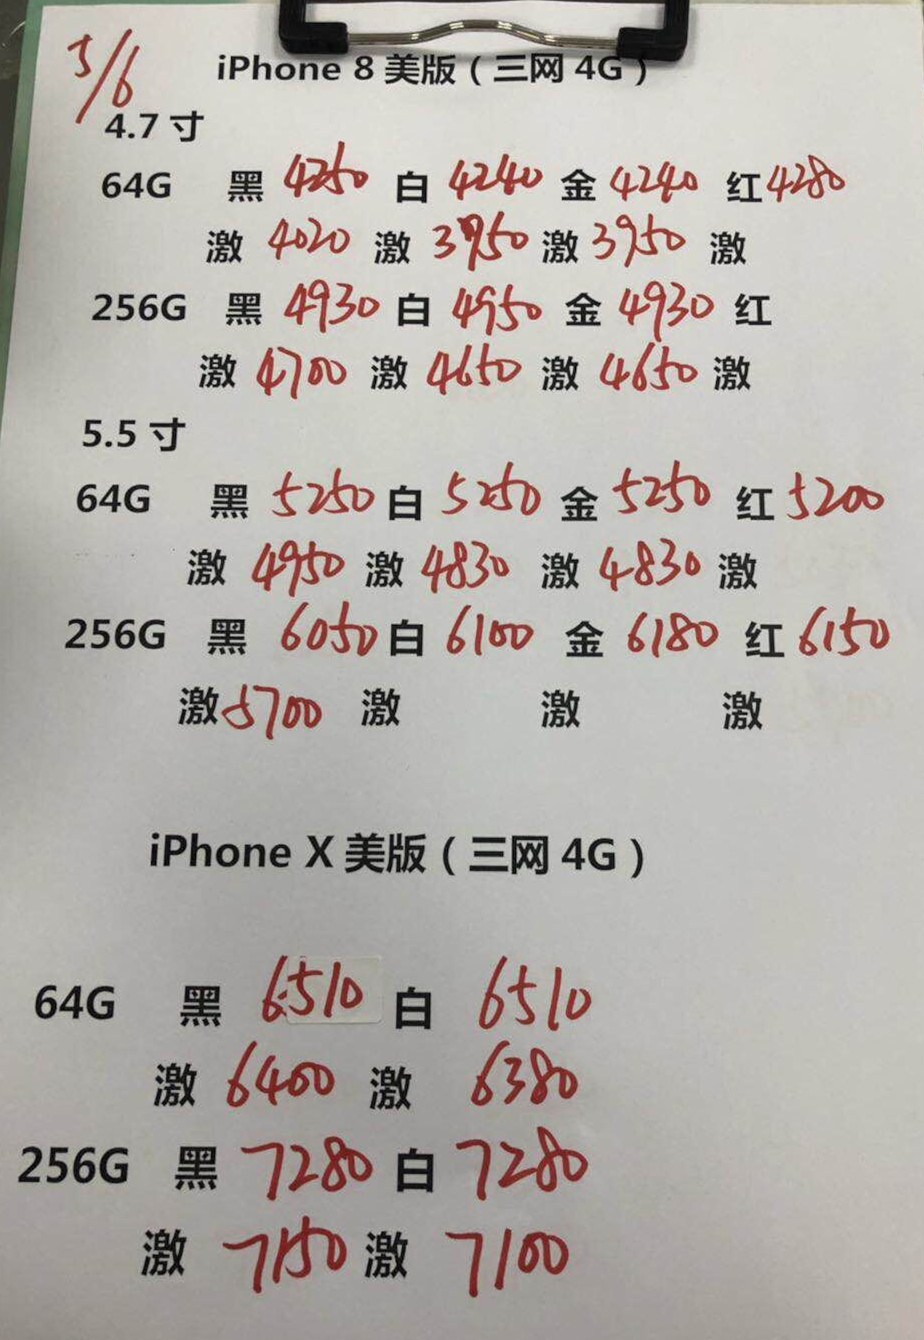 5/6
iPhone 8 美版（三网 4G）
4.7 寸
64G 黑 4250 白 4240 金 4240 红 4280
激 4020 激 3950 激 3950 激
256G 黑 4930 白 4950 金 4930 红
激 4700 激 4650 激 4650 激
5.5 寸
64G 黑 5250 白 5250 金 5250 红 5200
激 4950 激 4830 激 4830 激
256G 黑 6050 白 6100 金 6180 红 6150
激 5700 激 激 激
iPhone X 美版（三网 4G）
64G 黑 6510 白 6510
激 6400 激 6380
256G 黑 7280 白 7280
激 7150 激 7100